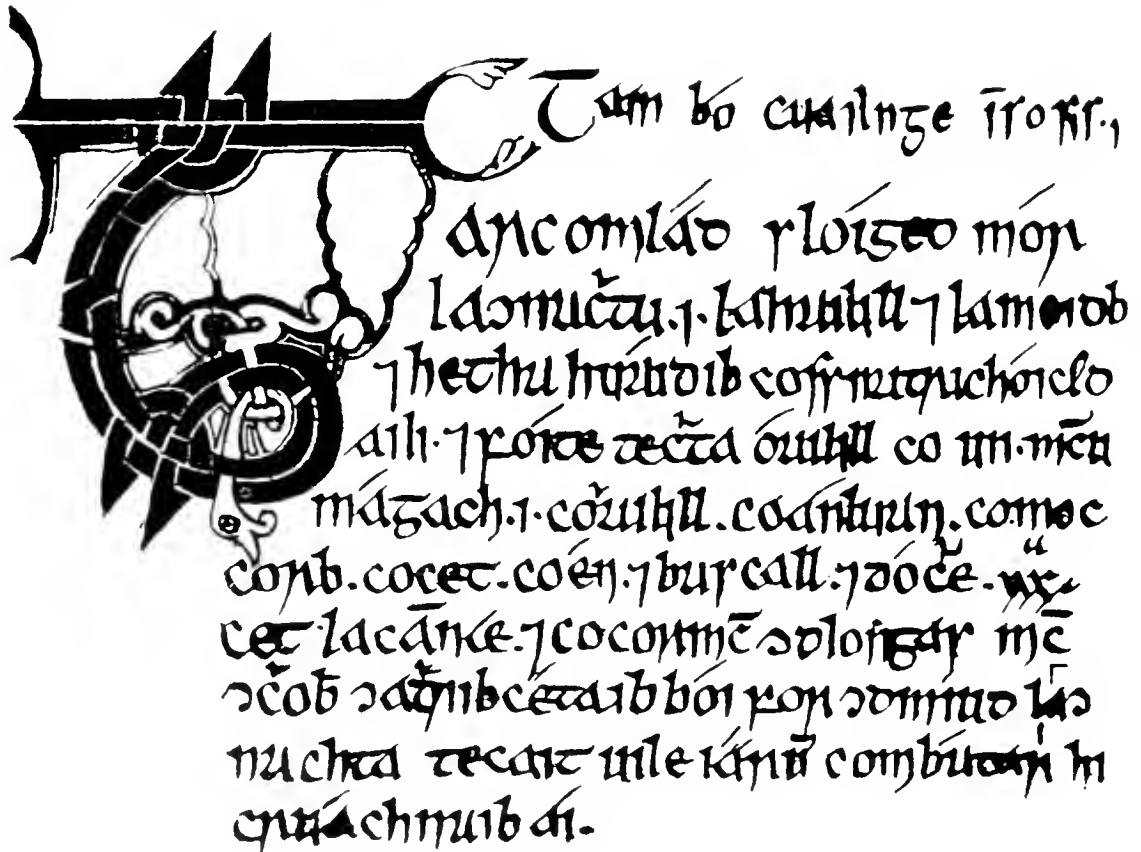 Tain bó cuailnge īso sis.,
Tarcomlád sloiged mór
laɔnacta.i. lahailill ⁊ lameidb
⁊ hetha huadib cossna tri choiced
aili. ⁊ foite tecta ó ailill co uii. mc̄u
mágach .i. co ailill. co ánluan. co moc
corb. co cet. co én. ⁊ bascall. ⁊ dóce. xxx.
cet la cānáe. ⁊ co cormc̄ ɔdlongas mc̄
ɔcob ɔatrib cétaib bói for ɔdmiud laɔ
nachta tecait uile iárū combátar hi
cruáchnaib ái.